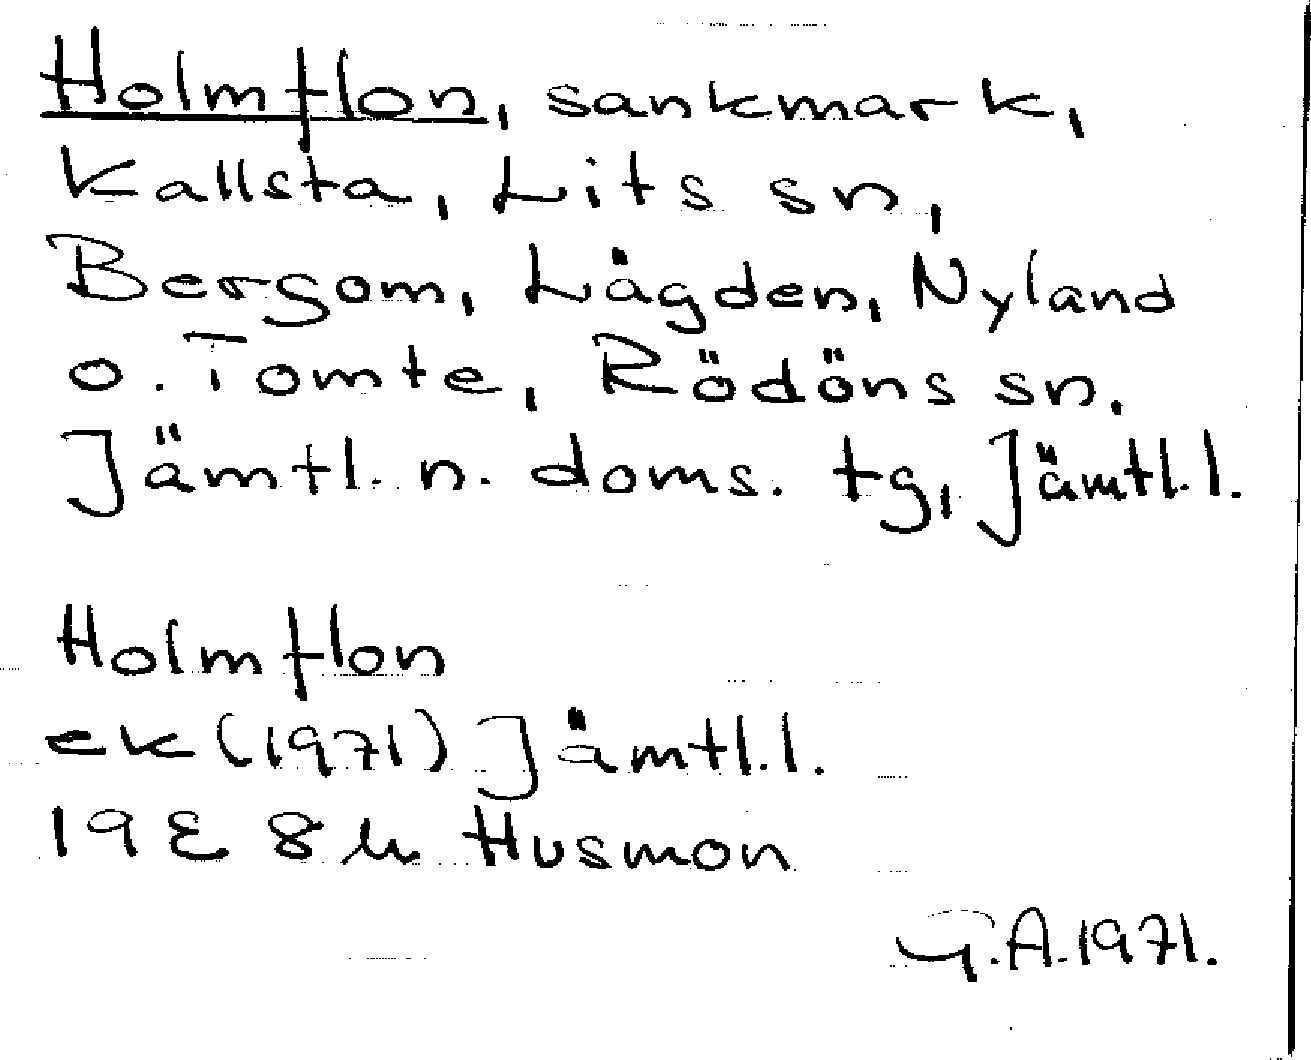 Holmflon, sankmark,
Kallsta, Lits sn,
Bergom, Lägden, Nyland
o. Tomte, Rödöns sn.
Jämtl. n. doms. tg, Jämtl.l.
Holmflon
ek (1971) Jämtl.l.
19E 8h Husmon
G.A. 1971.